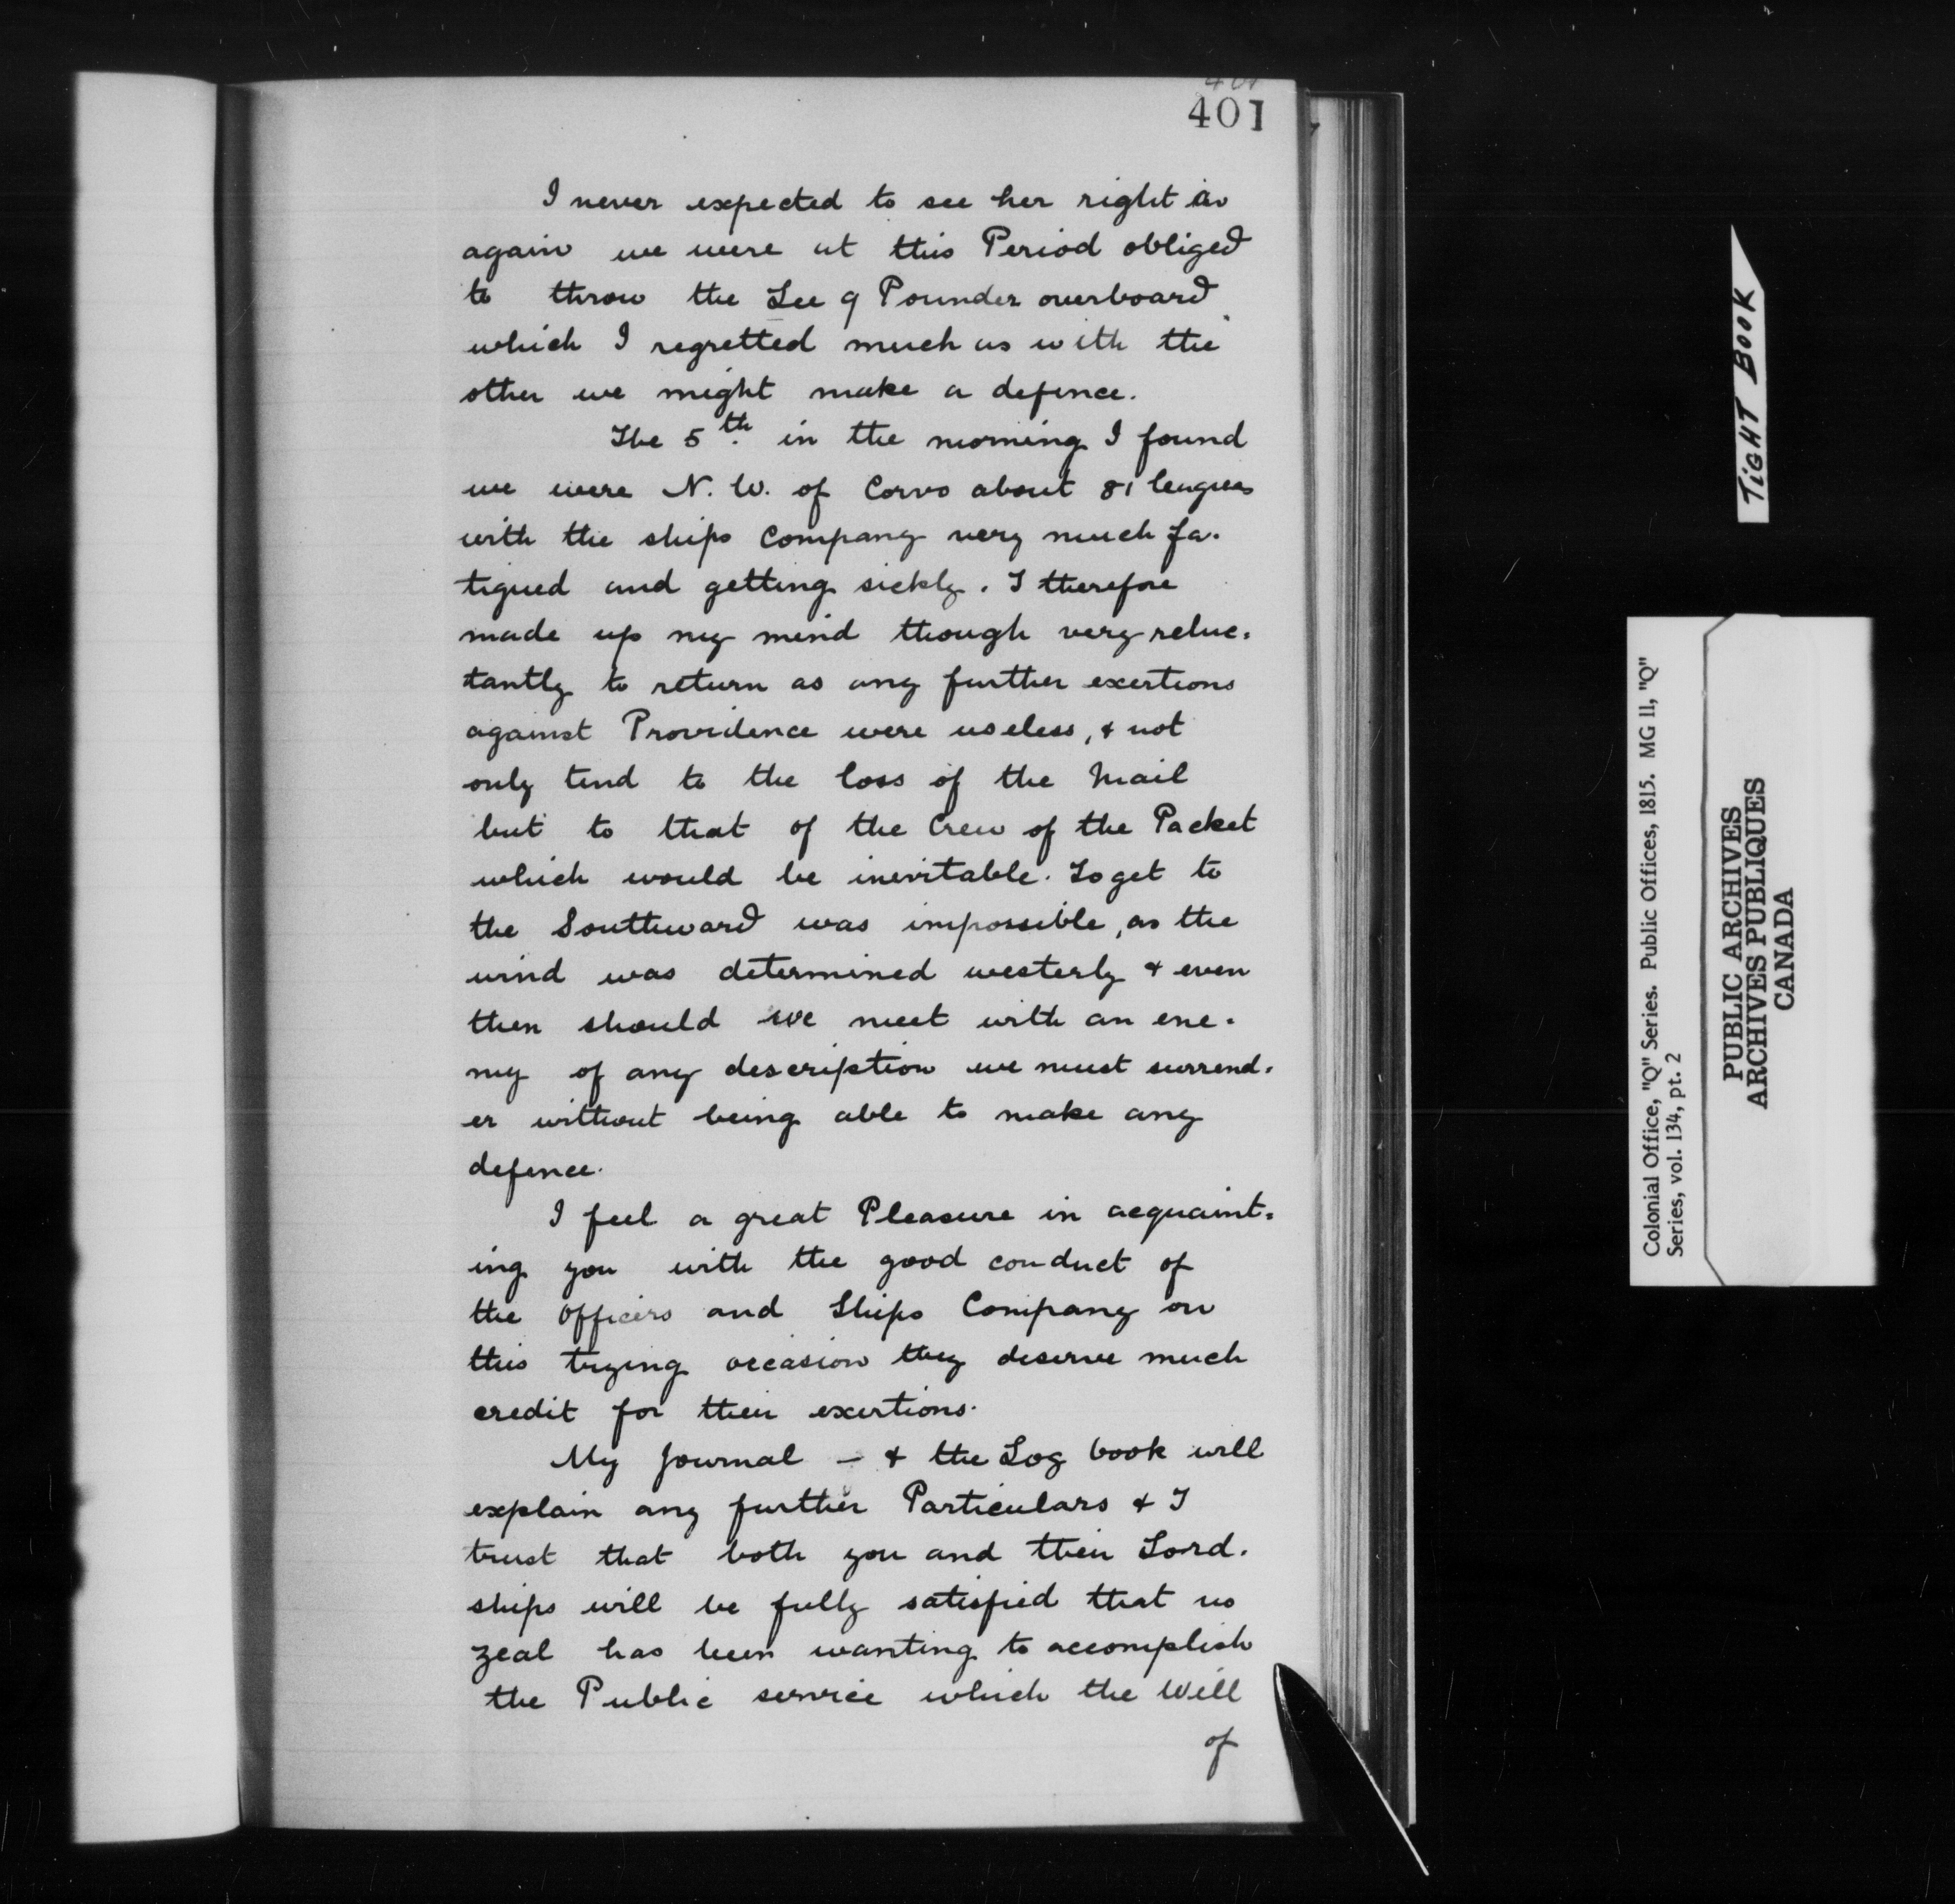 401
401
I never expected to see her right a
again we were at this Period obliged
to throw the Lee 9 Pounder overboard
which I regretted much as with the
other we might make a defence.
The 5th. in the morning I found
we were N. W. of Corvo about 81 leagues
with the ships Company very much fa-
tigued and getting sickly. I therefore
made up my mind though very reluc-
tantly to return as any further exertions
against Providence were useless, & not
only tend to the loss of the Mail
but to that of the Crew of the Packet
which would be inevitable. To get to
the Southward was impossible, as the
wind was determined westerly & even
then should we meet with an ene-
my of any description we must surrend-
er without being able to make any
defence.
I feel a great Pleasure in acquaint-
ing you with the good conduct of
the Officers and Ships Company on
this trying occasion they deserve much
credit for their exertions.
My Journal - & the Log book will
explain any further Particulars & I
trust that both you and their Lord-
ships will be fully satisfied that no
zeal has been wanting to accomplish
the Public service which the Will
of
TIGHT BOOK
Colonial Office, "Q" Series. Public Offices, 1815. MG 11, "Q"
Series, vol. 134, pt. 2
PUBLIC ARCHIVES
ARCHIVES PUBLIQUES
CANADA